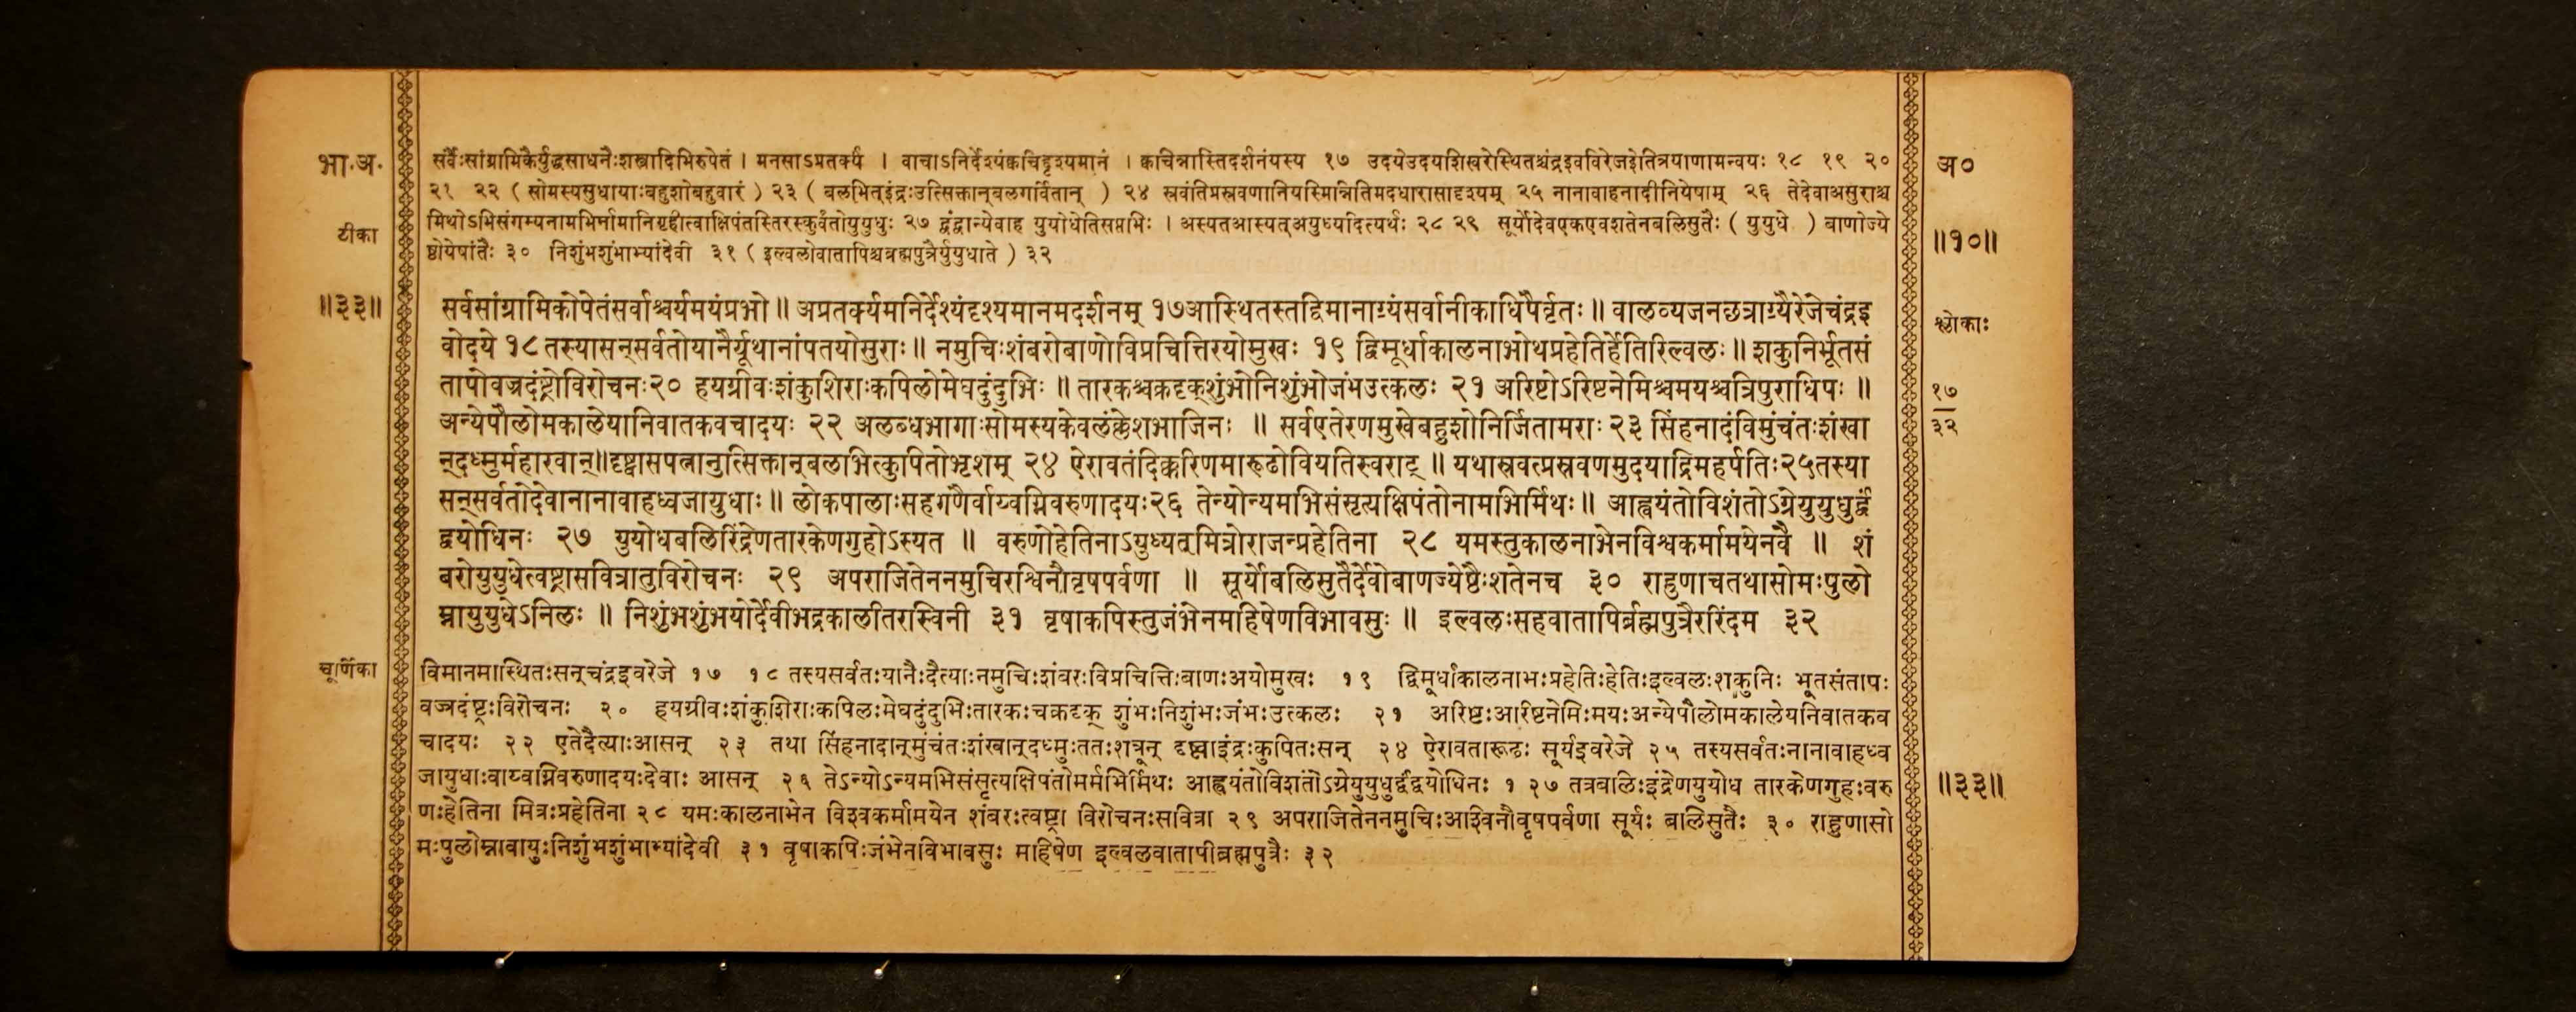 भा.अ.
टीका
॥३३॥
सर्वैःसांग्रामिकैर्युद्धसाधनैःशस्त्रादिभिरुपेतं । मनसाऽप्रतर्क्यं । वाचाऽनिर्देश्यंक्वचिद्दृश्यमानं । क्वचिन्नास्तिदर्शनंयस्य १७ उदयेउदयशिखरेस्थितश्चंद्रइवविरेजइतित्रयाणामन्वयः १८ १९ २०
२१ २२ ( सोमस्यसुधायाःबहुशोबहुवारं ) २३ ( बलभित्इंद्रःउत्सिक्तान्बलगर्वितान् ) २४ स्रवंतिप्रस्रवणानियस्मिन्नितिमदधारासादृश्यम् २५ नानावाहनादीनियेषाम् २६ तेदेवाअसुराश्च
मिथोऽभिसंगम्यनामभिर्नामानिगृहीत्वाक्षिपंतस्तिरस्कुर्वंतोयुयुधुः २७ द्वंद्वान्येवाह युयोधेतिसप्तभिः । अस्यतआस्यत्अयुध्यदित्यर्थः २८ २९ सूर्योदेवएकएवशतेनबलिसुतैः ( युयुधे ) बाणोज्ये
ष्ठोयेषांतैः ३० निशुंभशुंभाभ्यांदेवी ३१ ( इल्वलोवातापिश्चब्रह्मपुत्रैर्युयुधाते ) ३२
सर्वसांग्रामिकोपेतंसर्वाश्चर्यमयंप्रभो ॥ अप्रतर्क्यमनिर्देश्यंदृश्यमानमदर्शनम् १७आस्थितस्तद्विमानाग्र्यंसर्वानीकाधिपैर्वृतः ॥ वालव्यजनछत्राग्र्यैरेजेचंद्रइ
वोदये १८ तस्यासन्सर्वतोयानैर्यूथानांपतयोसुराः ॥ नमुचिःशंबरोबाणोविप्रचित्तिरयोमुखः १९ द्विमूर्धाकालनाभोथप्रहेतिर्हेतिरिल्वलः ॥ शकुनिर्भूतसं
तापोवज्रदंष्ट्रोविरोचनः२० हयग्रीवःशंकुशिराःकपिलोमेघदुंदुभिः ॥ तारकश्चक्रदृक्शुंभोनिशुंभोजंभउत्कलः २१ अरिष्टोऽरिष्टनेमिश्चमयश्चत्रिपुराधिपः ॥
अन्येपौलोमकालेयानिवातकवचादयः २२ अलब्धभागाःसोमस्यकेवलंक्लेशभाजिनः ॥ सर्वएतेरणमुखेबहुशोनिर्जितामराः २३ सिंहनादंविमुंचंतःशंखा
न्दध्मुर्महारवान्॥दृष्ट्वासपत्नानुत्सिक्तान्बलभित्कुपितोभृशम् २४ ऐरावतंदिक्करिणमारूढोवियतिस्वराट् ॥ यथास्रवत्प्रस्रवणमुदयाद्रिमहर्पतिः२५तस्या
सन्सर्वतोदेवानानावाहध्वजायुधाः ॥ लोकपालाःसहगणैर्वाय्वग्निवरुणादयः२६ तेन्योन्यमभिसंसृत्यक्षिपंतोनामभिर्मिथः ॥ आह्वयंतोविशंतोऽग्रेयुयुधुर्द्वं
द्वयोधिनः २७ युयोधबलिरिंद्रेणतारकेणगुहोऽस्यत ॥ वरुणोहेतिनाऽयुध्यन्मित्रोराजन्प्रहेतिना २८ यमस्तुकालनाभेनविश्वकर्मामयेनवै ॥ शं
बरोयुयुधेत्वष्ट्रासवित्रातुविरोचनः २९ अपराजितेननमुचिरश्विनौवृषपर्वणा ॥ सूर्योबलिसुतैर्देवोबाणज्येष्ठैःशतेनच ३० राहुणाचतथासोमःपुलो
म्नायुयुधेऽनिलः ॥ निशुंभशुंभयोर्देवीभद्रकालीतरस्विनी ३१ वृषाकपिस्तुजंभेनमहिषेणविभावसुः ॥ इल्वलःसहवातापिर्ब्रह्मपुत्रैररिंदम ३२
चूर्णिका
विमानमास्थितःसन्चंद्रइवरेजे १७ १८ तस्यसर्वतःयानैःदैत्याःनमुचिःशंबरःविप्रचित्तिःबाणःअयोमुखः १९ द्विमूर्धाकालनाभःप्रहेतिःहेतिःइल्वलःशकुनिः भूतसंतापः
वज्रदंष्ट्रःविरोचनः २० हयग्रीवःशंकुशिराःकपिलःमेघदुंदुभिःतारकःचक्रदृक् शुंभःनिशुंभःजंभःउत्कलः २१ अरिष्टःआरिष्टनेमिःमयःअन्येपौलोमकालेयनिवातकव
चादयः २२ एतेदैत्याःआसन् २३ तथा सिंहनादान्मुंचंतःशंखान्दध्मुःततःशत्रून् दृष्ट्वाइंद्रःकुपितःसन् २४ ऐरावतारूढः सूर्यइवरेजे २५ तस्यसर्वतःनानावाहध्व
जायुधाःवाय्वग्निवरुणादयःदेवाः आसन् २६ तेऽन्योऽन्यमभिसंसृत्यक्षिपंतोमर्मभिर्मिथः आह्वयंतोविशंतोऽग्रेयुयुधुर्द्वंद्वयोधिनः १ २७ तत्रबलिःइंद्रेणयुयोध तारकेणगुहःवरु
णःहेतिना मित्रःप्रहेतिना २८ यमःकालनाभेन विश्वकर्मामयेन शंबरःत्वष्ट्रा विरोचनःसवित्रा २९ अपराजितेननमुचिःआश्विनौवृषपर्वणा सूर्यः बलिसुतैः ३० राहुणासो
मःपुलोम्नावायुःनिशुंभशुंभाभ्यांदेवी ३१ वृषाकपिःजंभेनविभावसुः महिषेण इल्वलवातापीब्रह्मपुत्रैः ३२
अ०
॥१०॥
श्लोकाः
१७
३२
॥३३॥